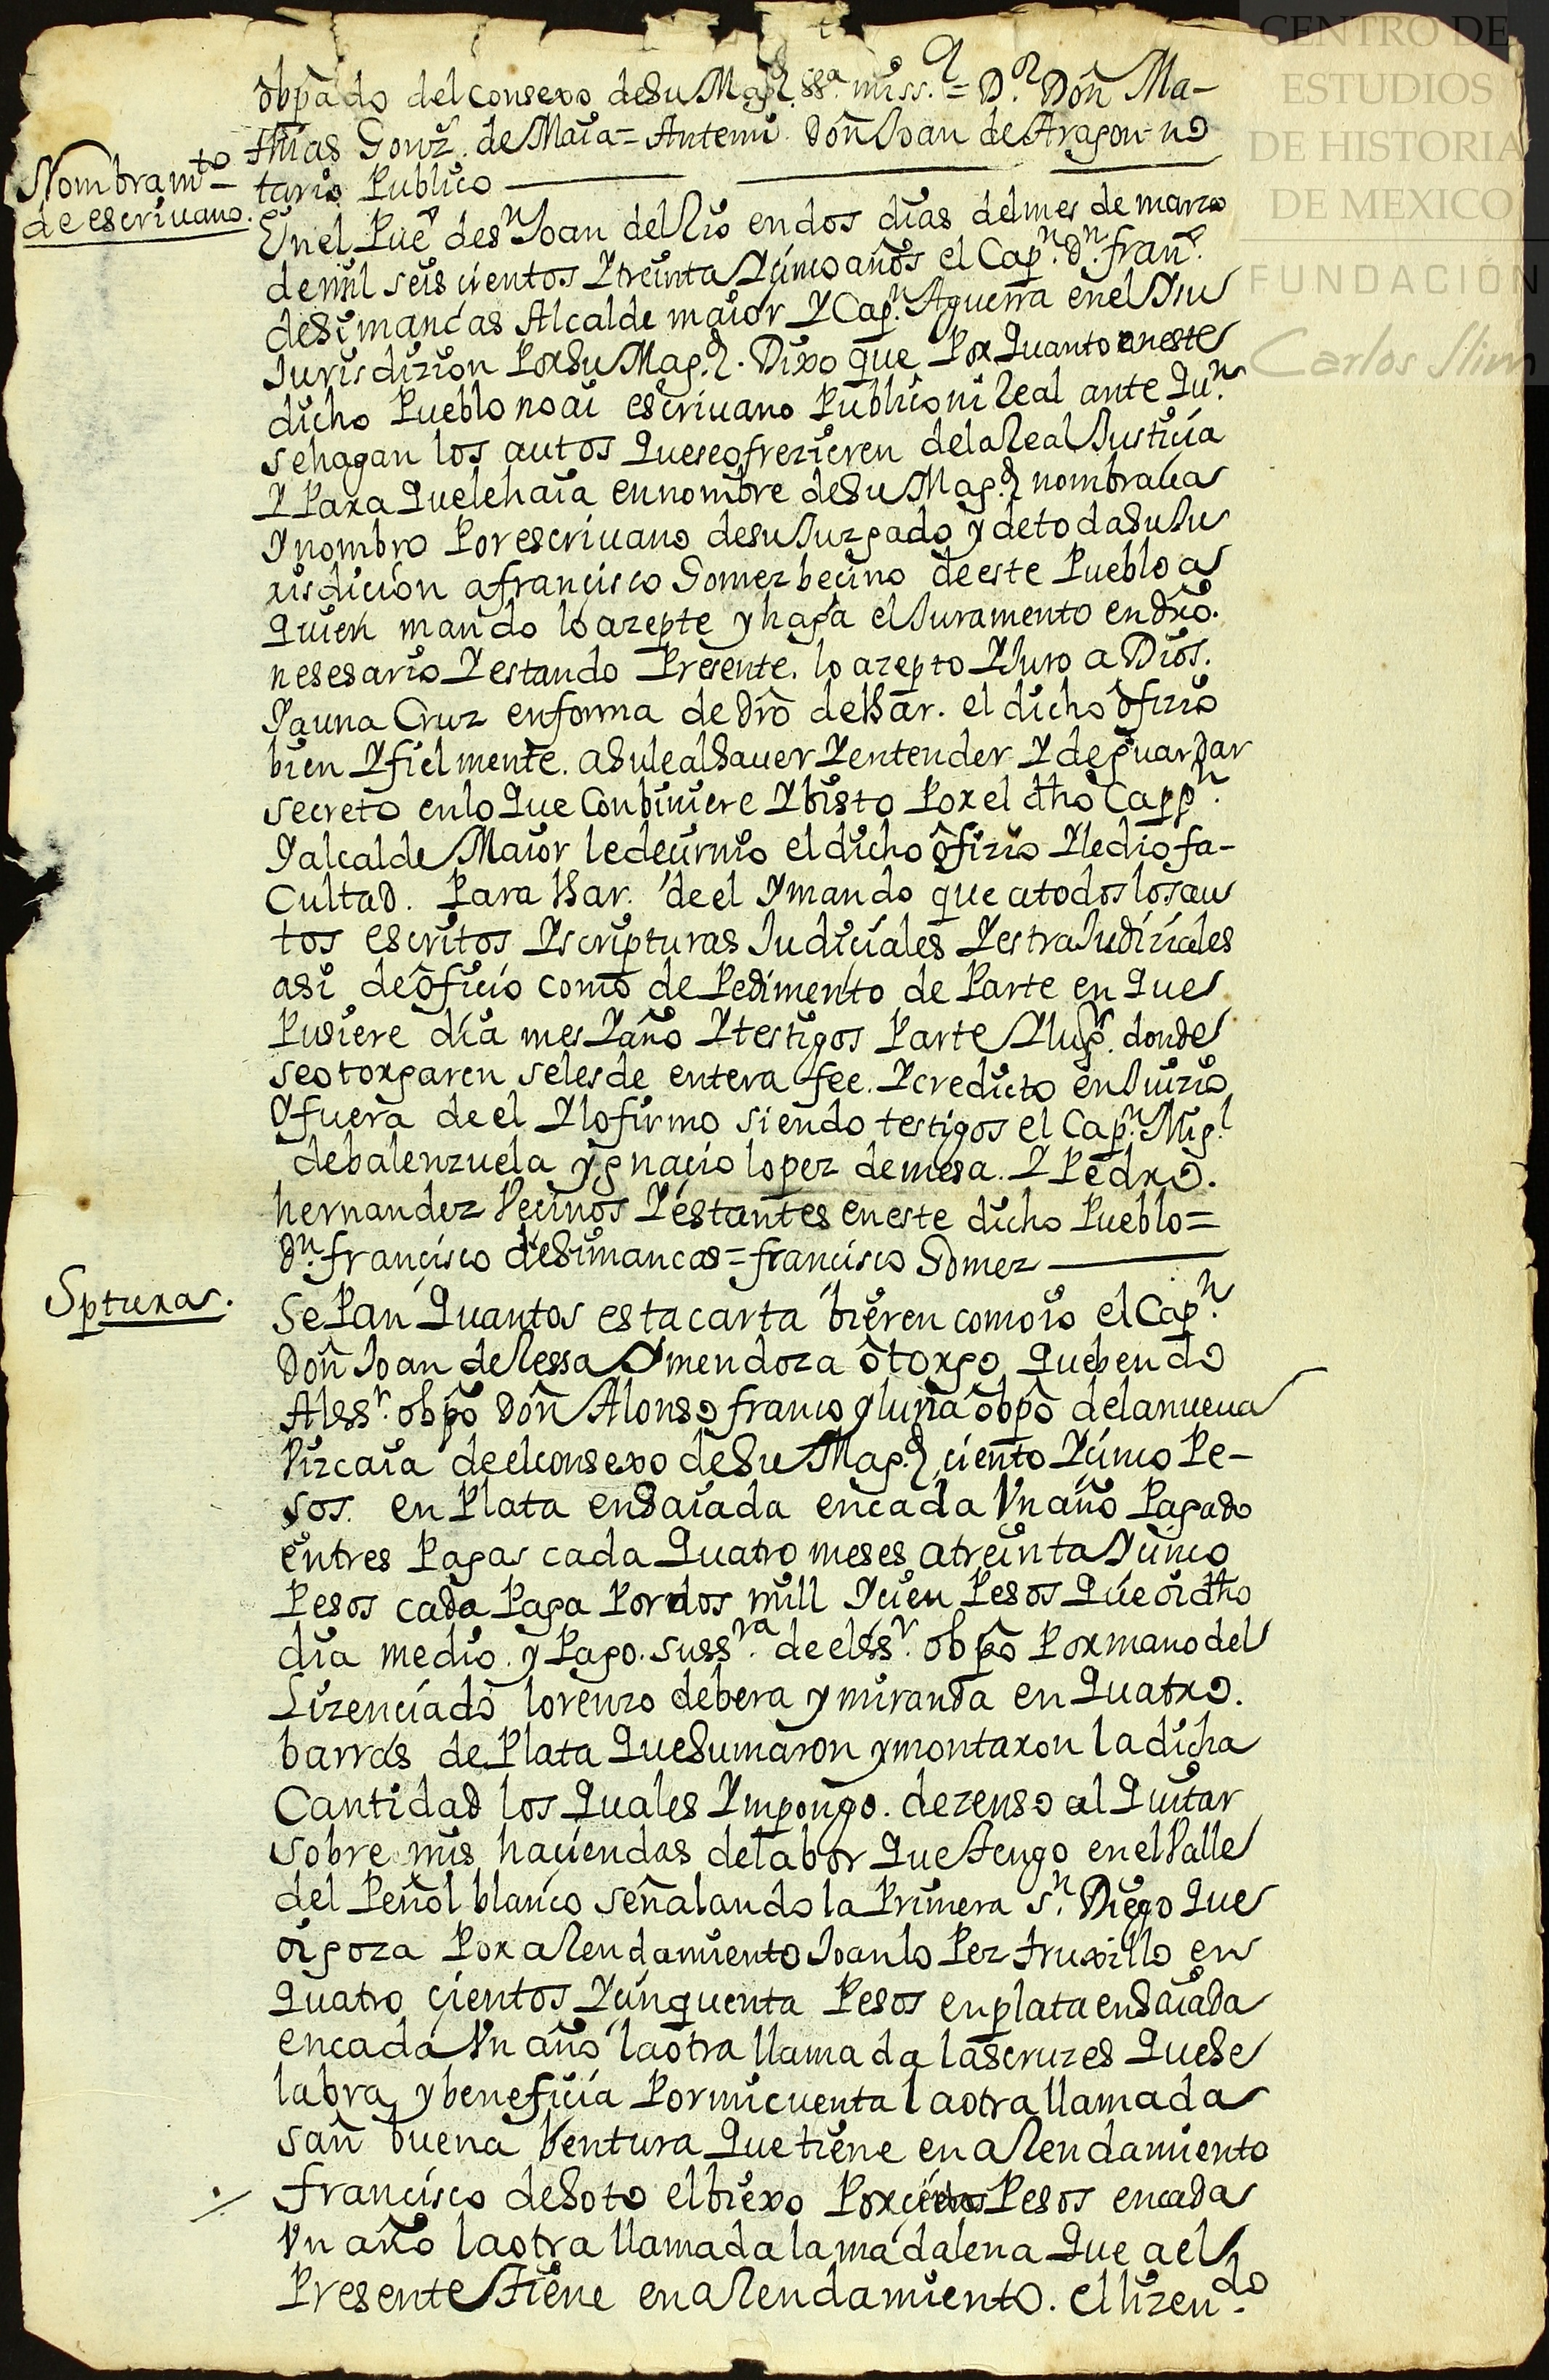 obpado del consexo deSu Magd. ssa. miss.= Dr. Don Ma-
thias Gonz. de Maia= Antemi Don Joan de Aragon no
tario Publico
Nombramto
de escrivano.
En el Pueo de sn Joan del Rio en dos dias del mes de marzo
de mil seis cientos Y treinta Y cinco años el Capn. Dn. franco.
de Simancas Alcalde maior Y Capn. Aguerra en el Y su
Jurisdizion Por Su Magd. Dixo que Por Quanto en este
dicho Pueblo no ai escrivano Publico ni Real ante Qun.
se hagan los autos Que se ofrezieren de la Real Justicia
Y Para Que le haia en nombre de Su Magd nombrava
Y nombro Por escrivano de su Juzgado y de toda Su Ju
risdicion a francisco Gomez becino de este Pueblo a
Quien mando lo azepte y haga el Juramento en dro.
nesesario Y estando Presente. lo azepto Y Juro a Dios.
Y a una Cruz en forma de dro de Usar. el dicho ofizio
bien Y fiel mente. a Su leal Saver Y entender Y de guardar
secreto en lo Que Conbiniere Y bisto Por el dho Cappn.
Y alcalde Maior le decirnio el dicho ofizio Y le dio fa-
Cultad. Para Usar. de el Y mando que a todos los au
tos escritos Y scripturas Judiciales Y estra Judiziales
asi de oficio como de Pedimento de Parte en Que
Pusiere dia mes Y año Y testigos Parte Y lugr. donde
se otorgaren se les de entera fee. Y credicto en Juizio
Y fuera de el Y lo firmo siendo testigos el Capn. Migl
de balenzuela y gnacio lopez de mesa. Y Pedro.
hernandez Vecinos Y estantes en este dicho Pueblo=
Dn. francisco de Simancas= francisco Gomez
Spturas.
Se Pan Quantos esta carta bieren como io el Capn.
Don Joan de Ressa Y mendoza otorgo Que bendo
Al ssr. obpo Don Alonso franco y luna obpo de la nueva
Vizcaia de el consexo de Su Magd ciento Y cinco Pe-
sos. en Plata enSaiada en cada Vn año Pagado
en tres Pagas cada Quatro meses a treinta Y cinco
Pesos cada Paga Por dos mill Y cien Pesos Que oi dho
dia me dio. y Pago. su ssra. de el ssr. obpo Por mano del
Lizenciado lorenzo de bera y miranda en Quatro.
barras de Plata Que Sumaron y montaron la dicha
Cantidad los Quales Ympongo. de zenso al Quitar
sobre mis haciendas de labor Que tengo en el Valle
del Peñol blanco señalando la Primera sn. Diego Que
oi goza Por a Rendamiento Joan lo Pez truxillo en
Quatro cientos Y cinquenta Pesos en plata enSaiada
en cada Vn año la otra llamada las cruzes Que Se
labra y beneficia Por mi cuenta la otra llamada
san buena bentura Que tiene en a Rendamiento
francisco de Soto el biexo Por Pesos en cada
Vn año la otra llamada la madalena Que a el
Presente tiene en a Rendamiento. el lizendo.
CENTRO DE
ESTUDIOS
DE HISTORIA
DE MEXICO
FUNDACIÓN
Carlos Slim